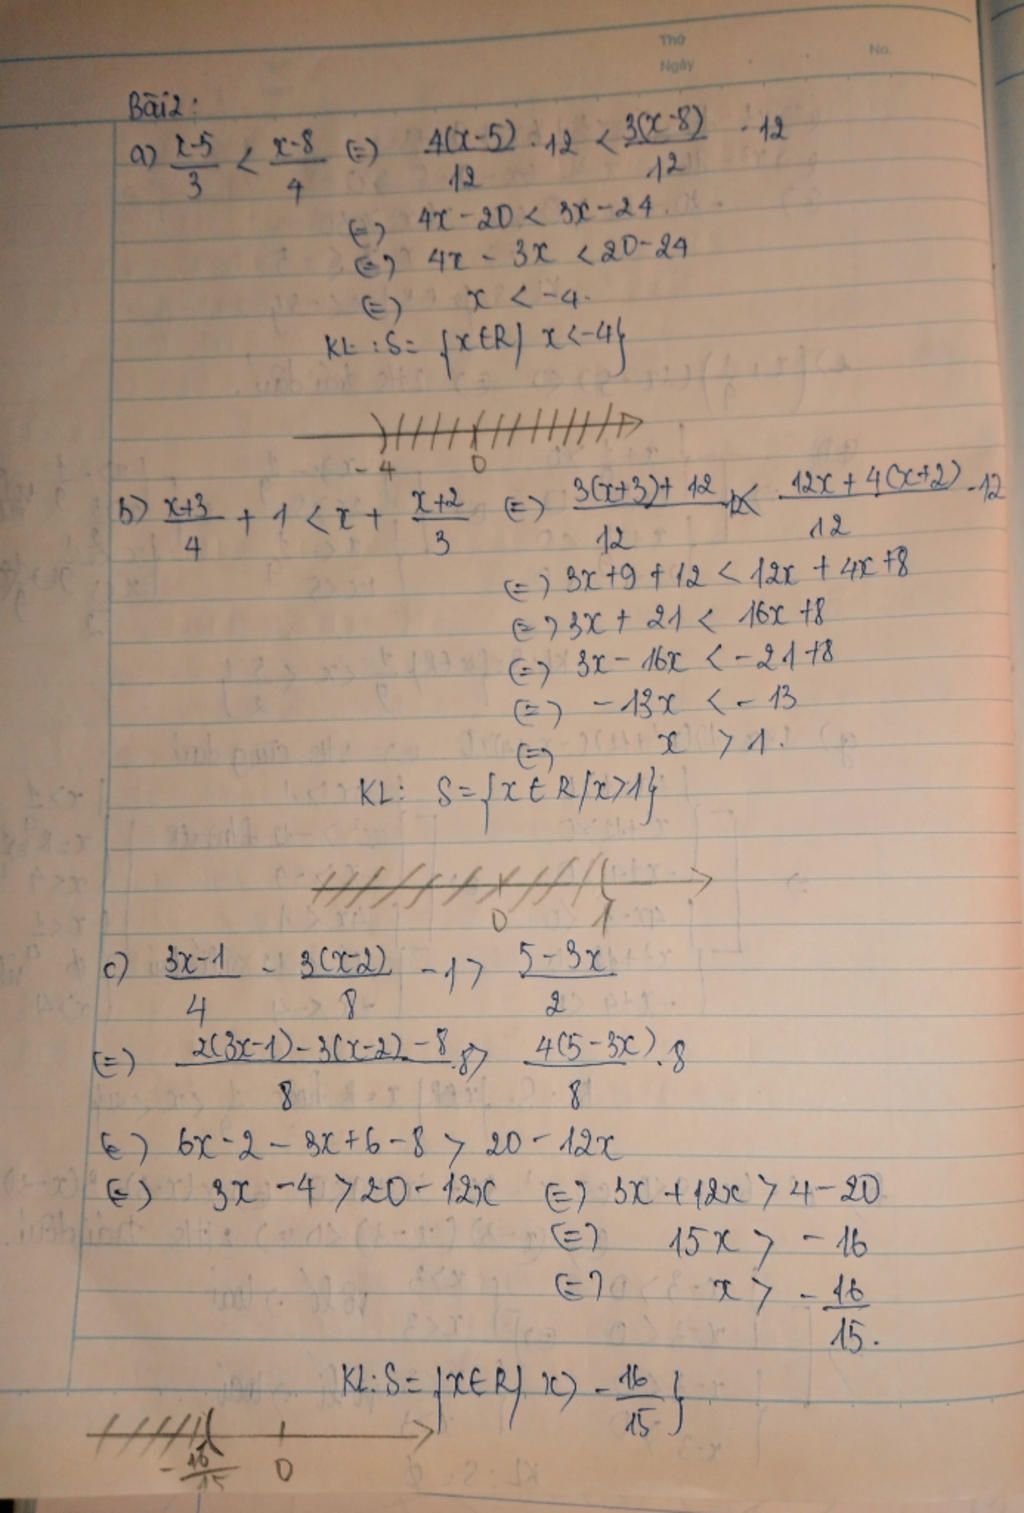 Thứ
No.
Ngày
Bài 2:
a) x-5/3 < x-8/4 (=) 4(x-5)/12 · 12 < 3(x-8)/12 · 12
(=) 4x - 20 < 3x - 24
(=) 4x - 3x < 20 - 24
(=) x < -4.
KL: S = {x ∈ R / x < -4}
-4 0
b) x+3/4 + 1 < x + x+2/3 (=) 3(x+3) + 12/12 · 12 < 12x + 4(x+2)/12 · 12
(=) 3x + 9 + 12 < 12x + 4x + 8
(=) 3x + 21 < 16x + 8
(=) 3x - 16x < -21 + 8
(=) -13x < -13
(=) x > 1.
KL: S = {x ∈ R / x > 1}
0 1
c) 3x-1/4 - 3(x-2)/8 - 1 > 5-3x/2
(=) 2(3x-1) - 3(x-2) - 8/8 · 8 > 4(5-3x)/8 · 8
(=) 6x - 2 - 3x + 6 - 8 > 20 - 12x
(=) 3x - 4 > 20 - 12x (=) 3x + 12x > 4 - 20
(=) 15x > -16
(=) x > -16/15.
KL: S = {x ∈ R / x > -16/15}
-16/15 0